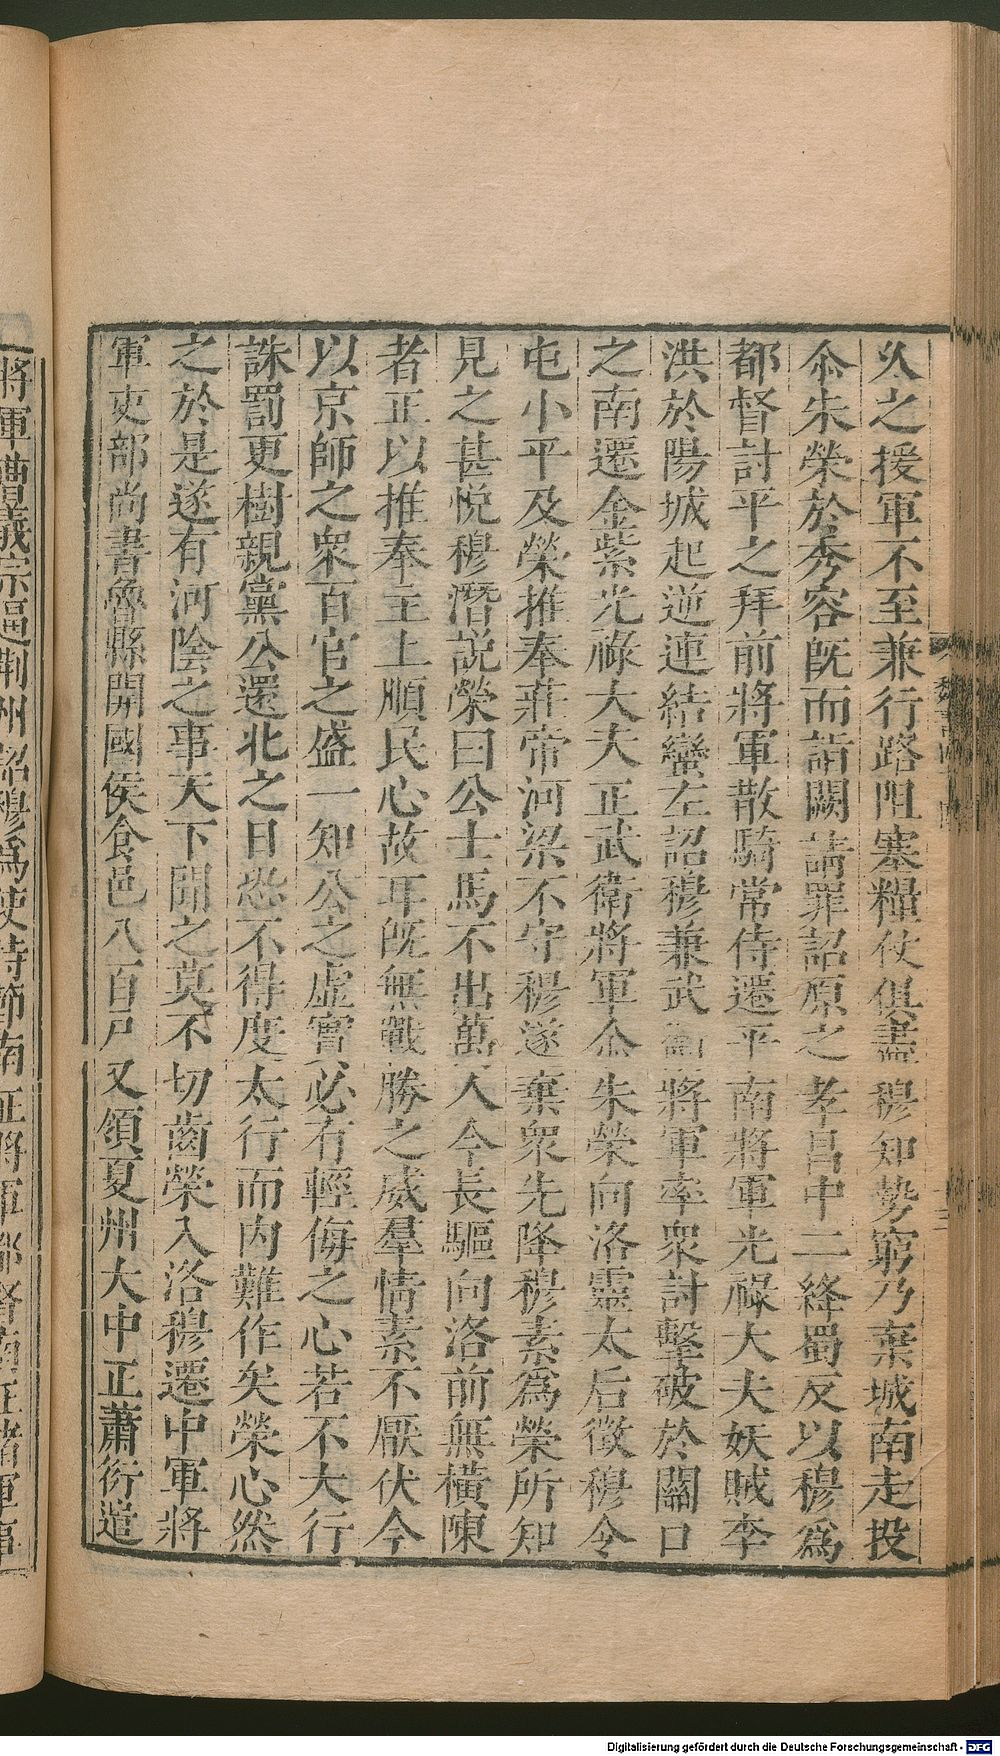 久之援軍不至兼行路阻塞糧仗俱盡穆知勢窮乃棄城南走投
尒朱榮於秀容既而詣闕請罪詔原之孝昌中二絳蜀反以穆爲
都督討平之拜前將軍散騎常侍遷平南將軍光祿大夫妖賊李
洪於陽城起逆連結蠻左詔穆兼武衞將軍率衆討擊破於關口
之南遷金紫光祿大夫正武衞將軍尒朱榮向洛靈太后徵穆令
屯小平及榮推奉莊帝河梁不守穆遂棄衆先降穆素爲榮所知
見之甚悅穆潛說榮曰公士馬不出萬人今長驅向洛前無橫陳
者正以推奉主上順民心故耳既無戰勝之威羣情素不厭伏今
以京師之衆百官之盛一知公之虛實必有輕侮之心若不大行
誅罰更樹親黨公還北之日恐不得度太行而內難作矣榮心然
之於是遂有河陰之事天下聞之莫不切齒榮入洛穆遷中軍將
軍吏部尚書魯縣開國侯食邑八百戶又領夏州大中正蕭衍遣
將軍曹義宗逼荆州詔穆爲使持節南征將軍都督南征諸軍事
魏書四十四
十三
Digitalisierung gefördert durch die Deutsche Forschungsgemeinschaft - DFG